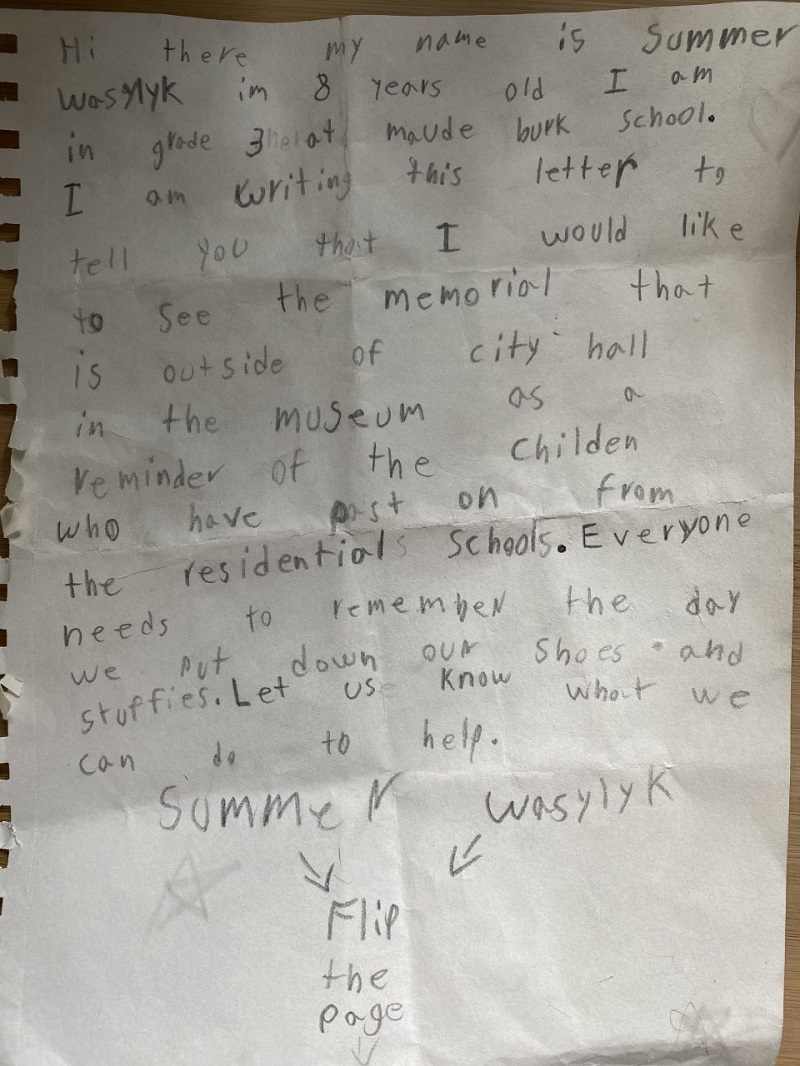 Hi there my name is Summer
Wasylyk im 8 years old I am
in grade 3 at maude burk school.
I am writing this letter to
tell you that I would like
to see the memorial that
is outside of city hall
in the museum as a
reminder of the Childen
who have past on from
the residentials schools. Everyone
needs to remember the day
we put down our shoes and
stuffies. Let us know what we
can do to help.
Summer Wasylyk
Flip
the
page